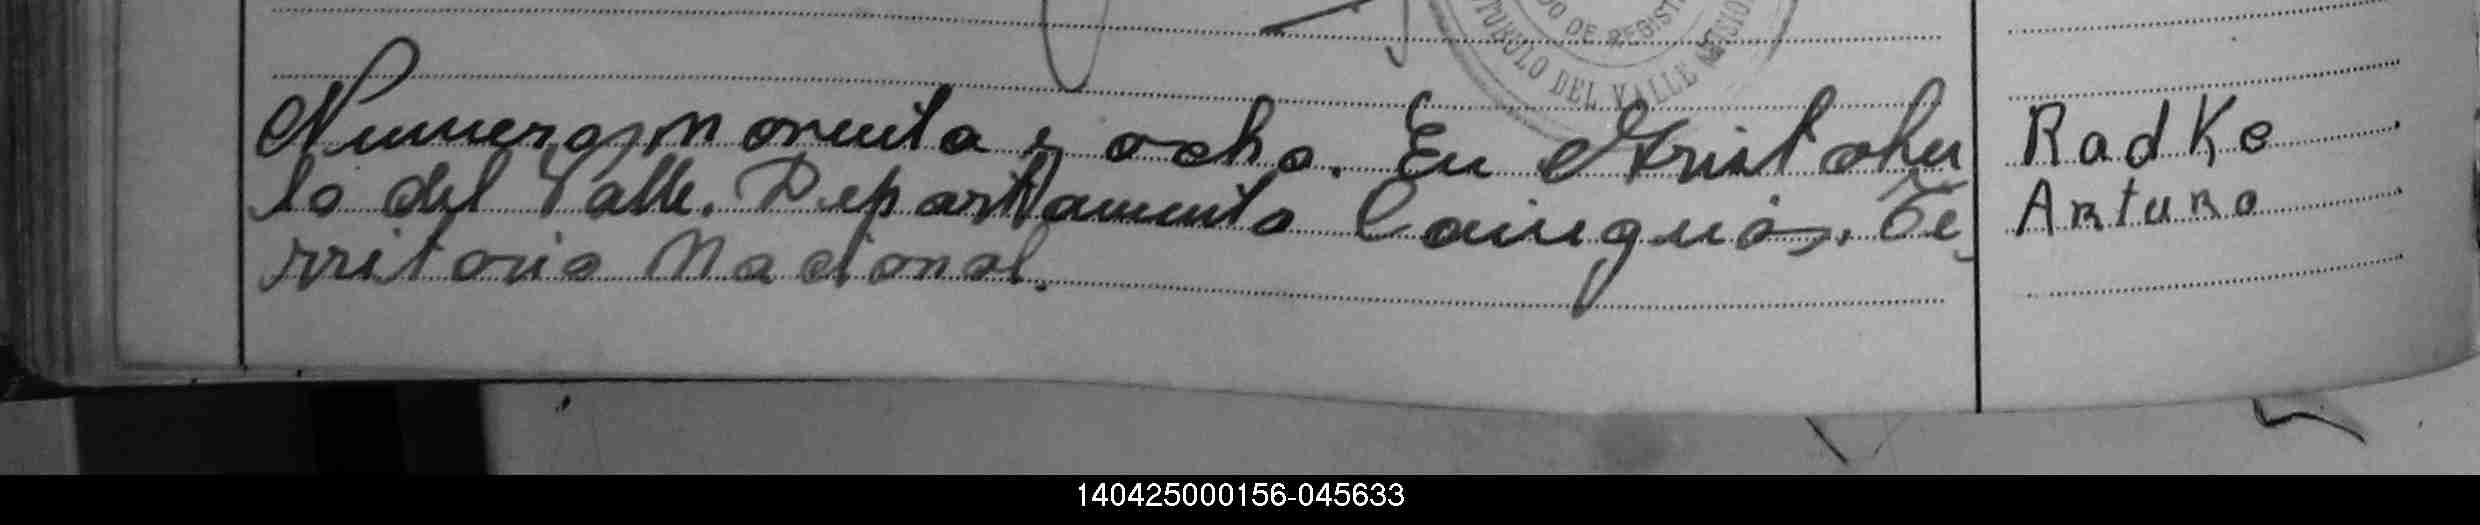 DO DE REGISTR
TOBULO DEL VALLE MISION
Numero, noventa y ocho. En Aristobu
lo del Valle. Departamento Cainguás. Te
rritorio Nacional.
Radke
Arturo
140425000156-045633